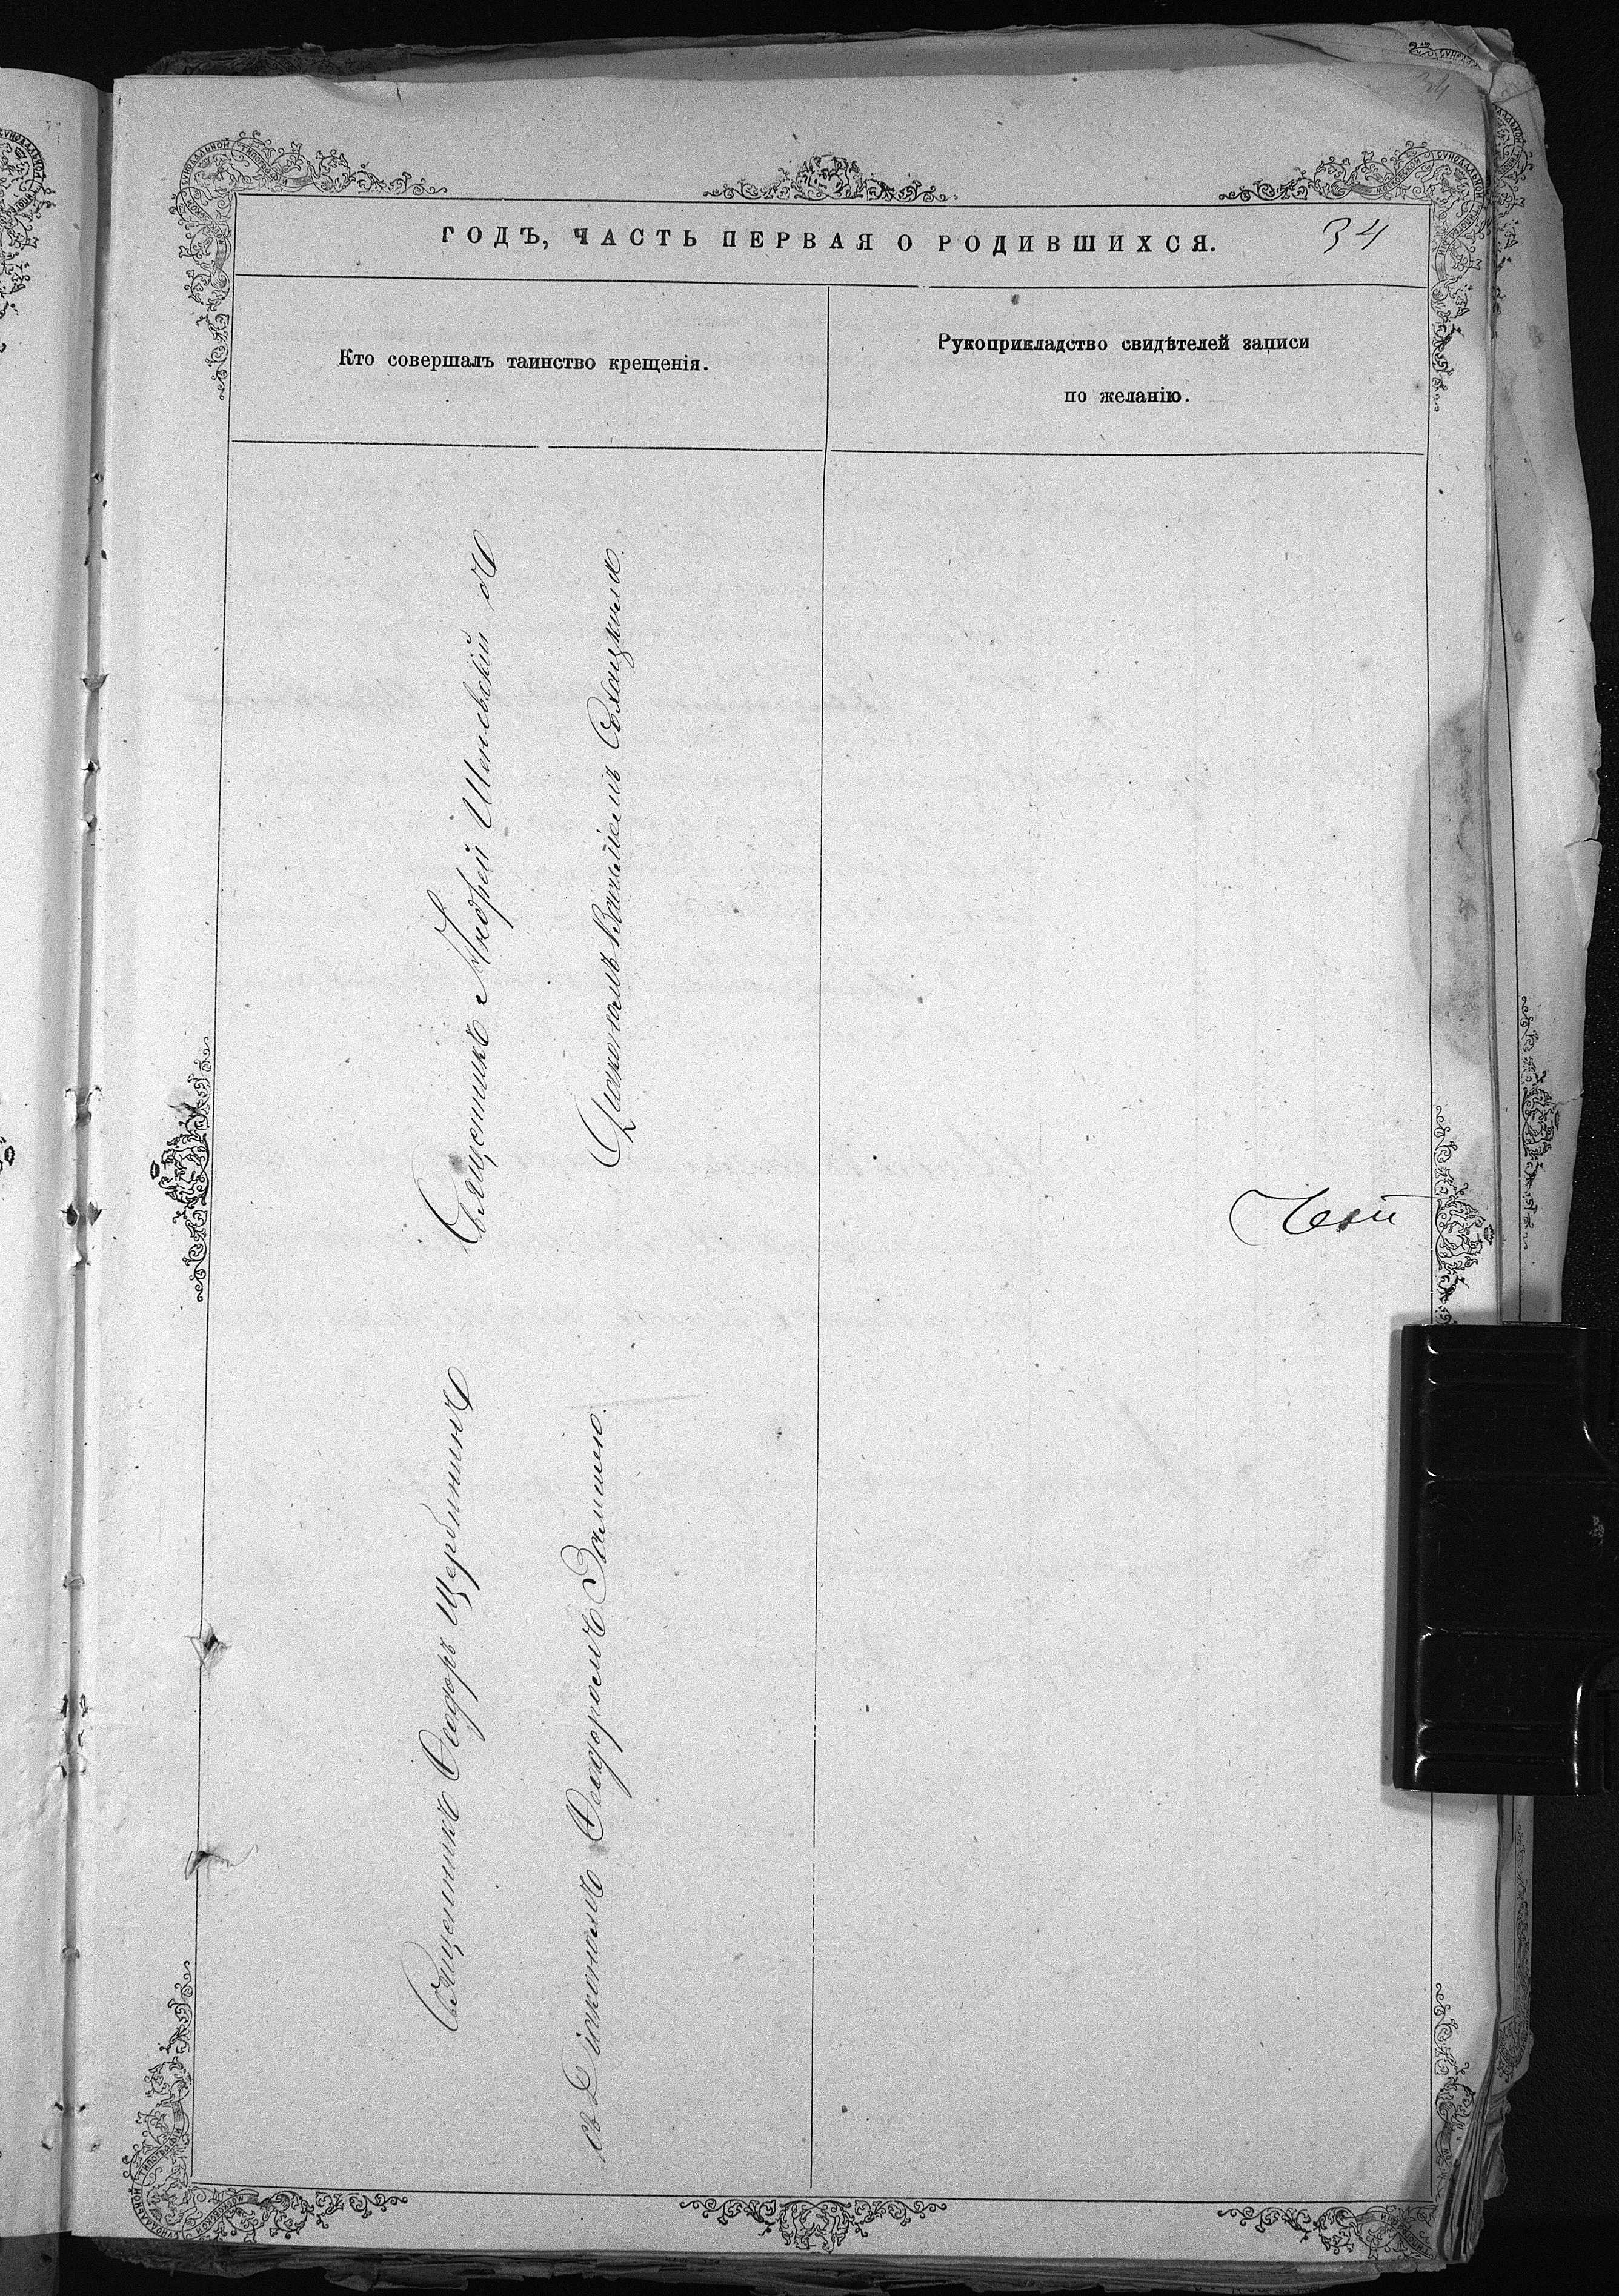 34
ГОДЪ, ЧАСТЬ ПЕРВАЯ О РОДИВШИХСЯ.
34
Кто совершалъ таинство крещенія.
Рукоприкладство свидѣтелей записи
по желанію.
Священникъ Андрей Шепевскій съ
Диакономъ Василіемъ
Священникъ Ѳеодоръ Щербининъ
съ Діакономъ Ѳеодоромъ